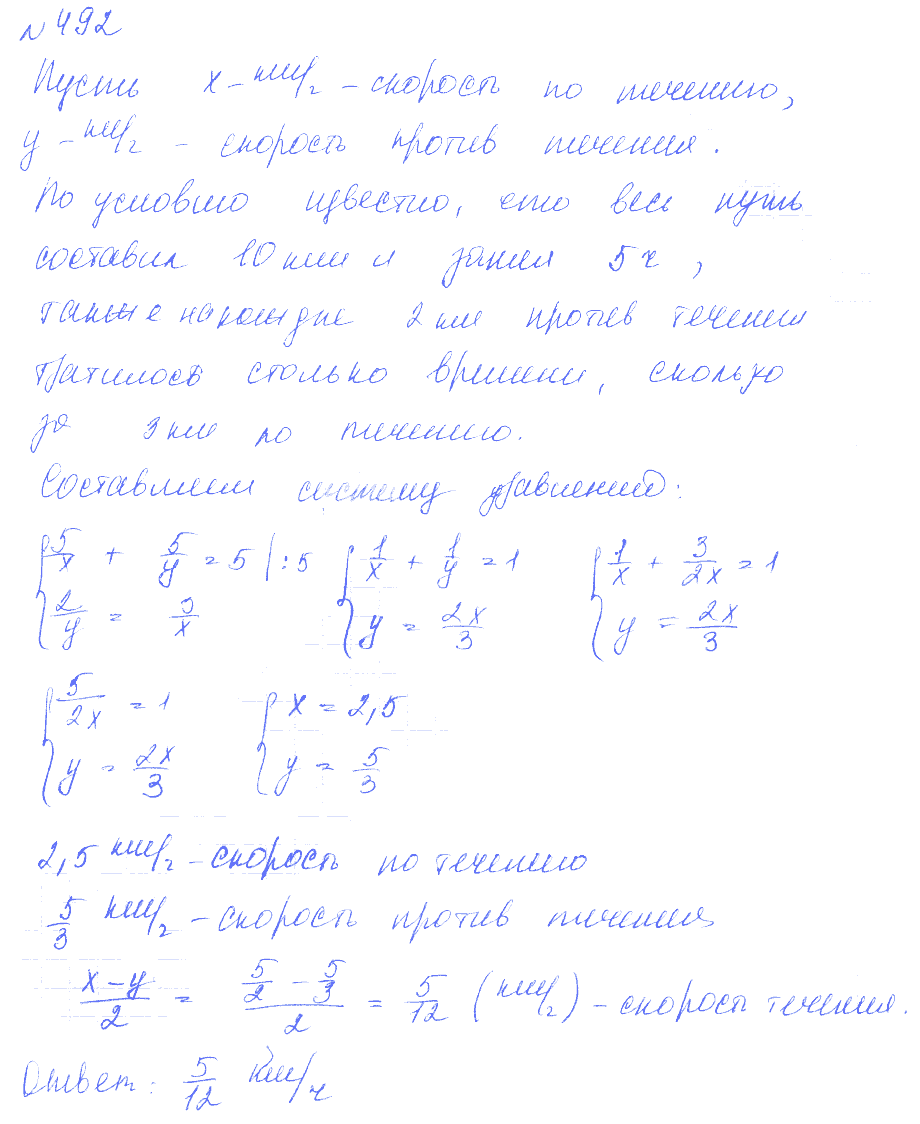 № 492
Пусть x - км/ч - скорость по течению,
y - км/ч - скорость против течения.
По условию известно, что весь путь
составил 10 км и занял 5 ч,
также на каждые 2 км против течения
тратилось столько времени, сколько
за 3 км по течению.
Составляем систему уравнений:
{5/x + 5/y = 5 |:5 {1/x + 1/y = 1 {1/x + 3/2x = 1
{2/y = 3/x {y = 2x/3 {y = 2x/3
{5/2x = 1 {x = 2,5
{y = 2x/3 {y = 5/3
2,5 км/ч - скорость по течению
5/3 км/ч - скорость против течения
(x-y)/2 = (5/2 - 5/3)/2 = 5/12 (км/ч) - скорость течения.
Ответ: 5/12 км/ч